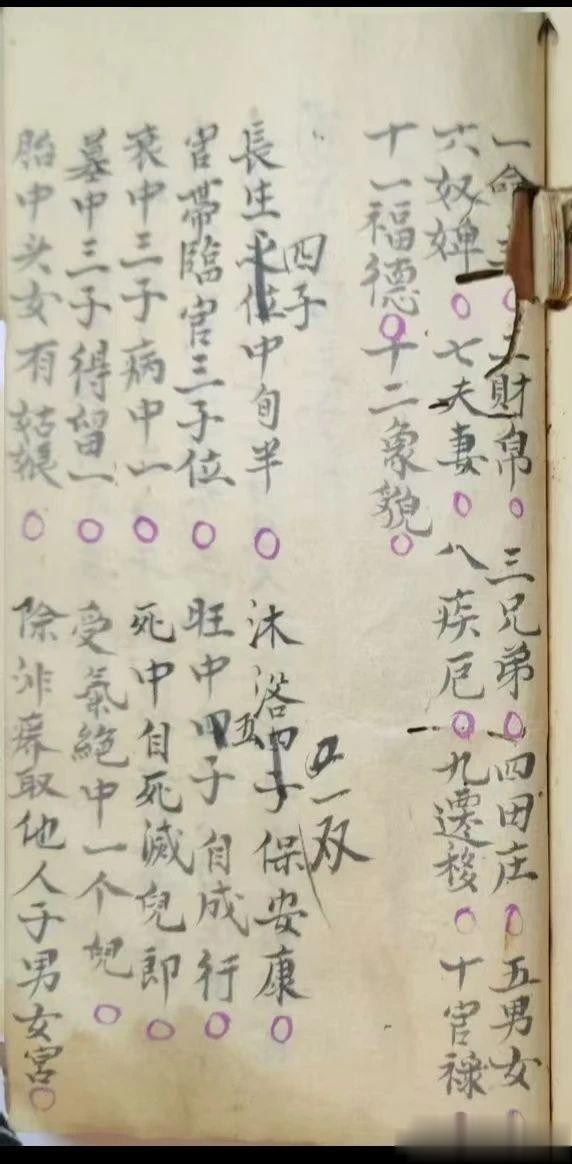 一命 二財帛 三兄弟 四田庄 五男女
六奴婢 七夫妻 八疾厄 九遷移 十官禄
十一福德 十二象貌
四子 一双
長生位中旬半 沐浴四子保安康
官帶臨官三子位 旺中五子自成行
衰中三子病中一 死中自死滅兒郎
墓中三子得留一 受氣絶中一个兒
胎中头女有姑娘 除非養取他人子男女宮